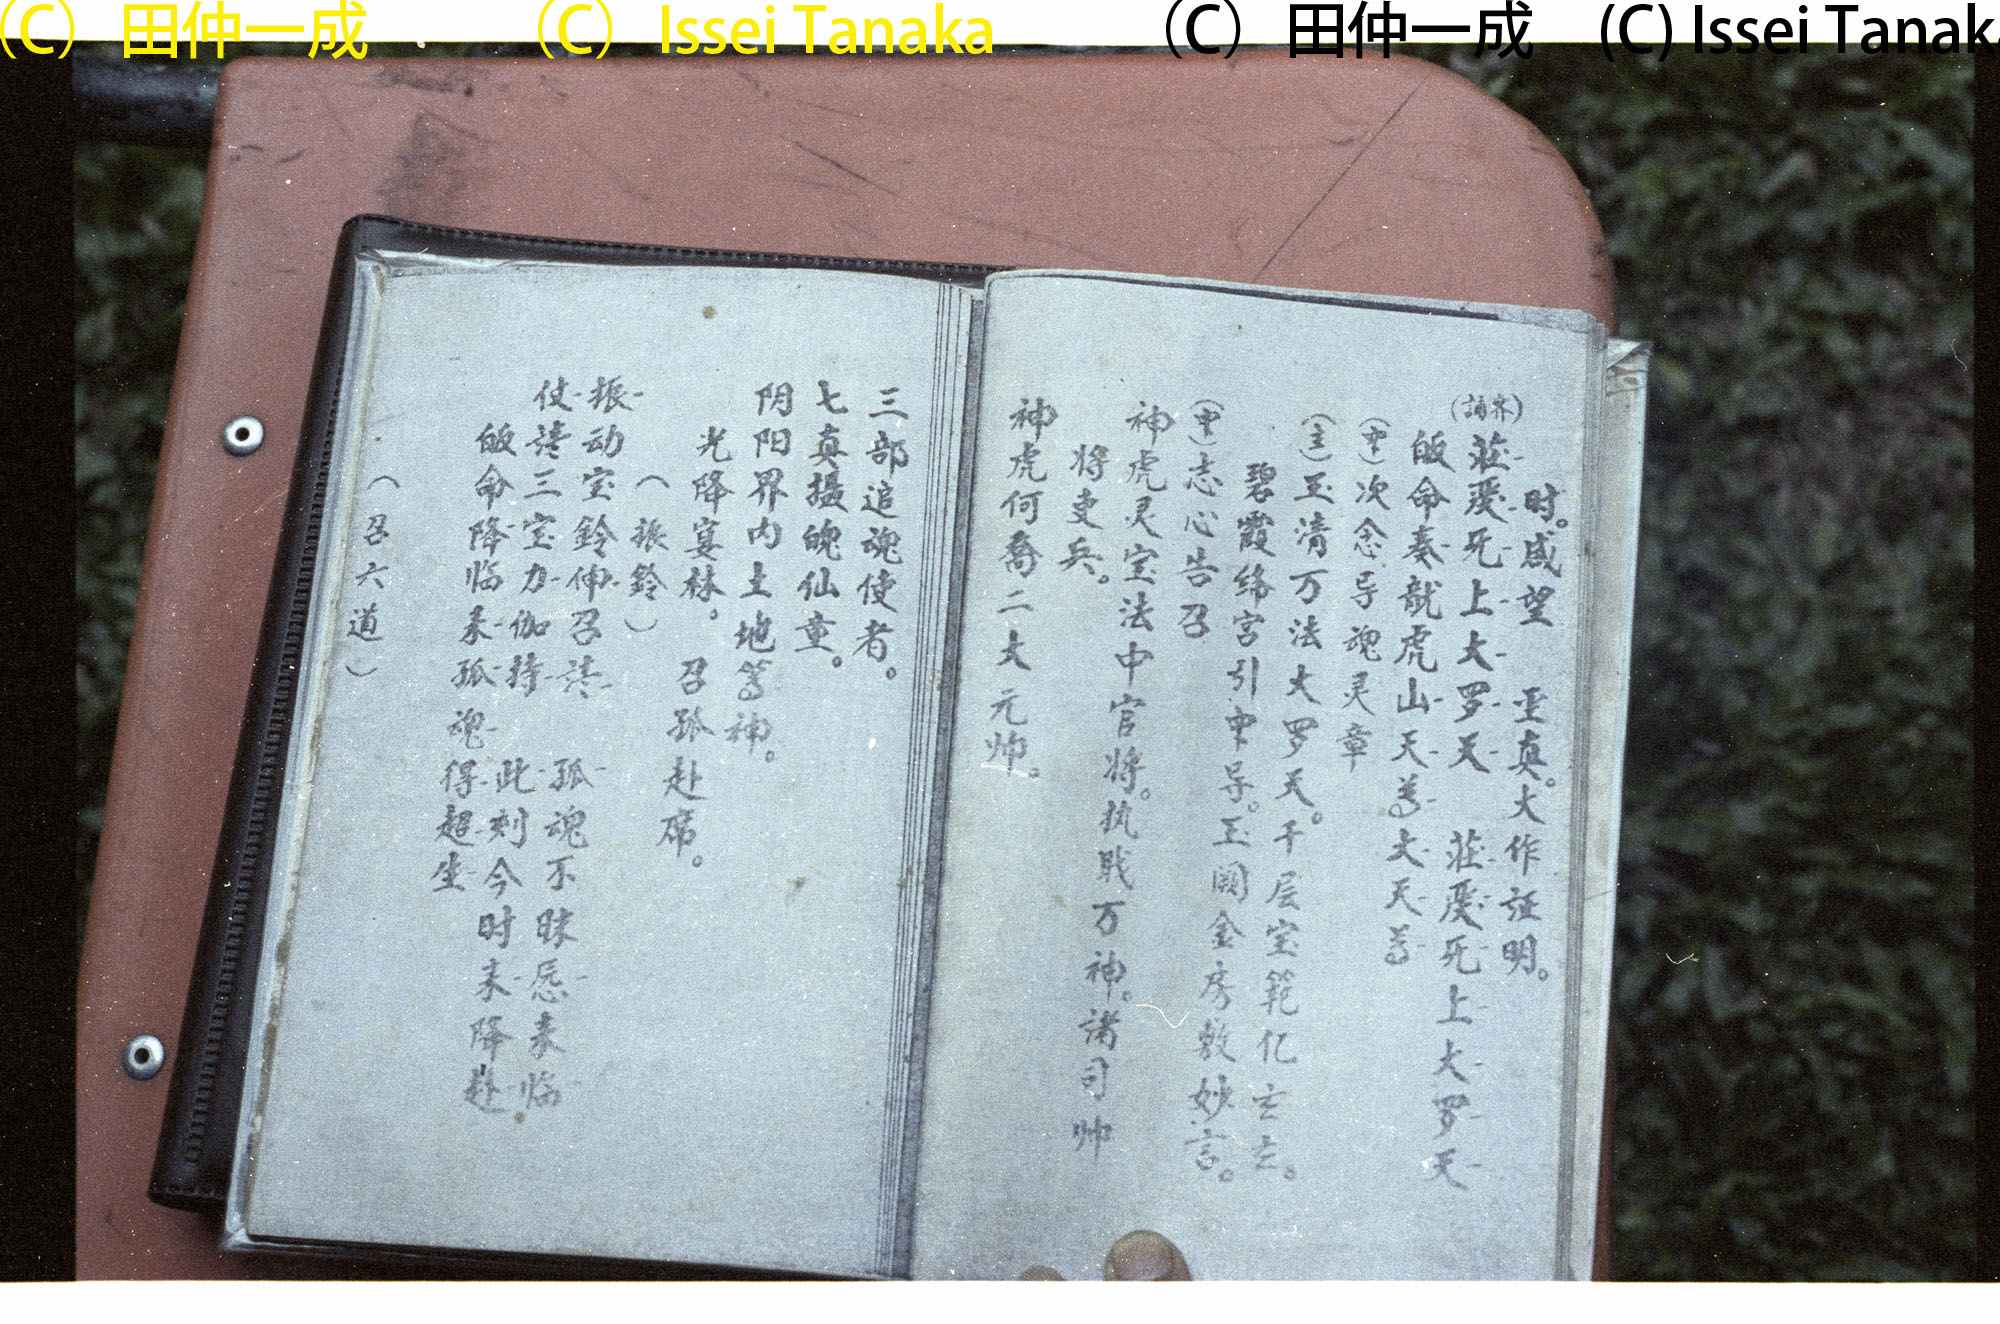 (C) 田仲一成 (C) Issei Tanaka (C) 田仲一成 (C) Issei Tanak
时。咸望 圣真。大作证明。
(齐誦)莊严死上大罗天 莊严死上大罗天
皈命奏龍虎山天尊大天尊
(中)次念导魂灵章
(主)玉清万法大罗天。千层宝範亿云云。
碧霞绛宫引中导。玉阙金房敷妙言。
(中)志心告召
神虎灵宝法中官将。执戝万神。诸司帅
将吏兵。
神虎何喬二大元帅。
三部追魂使者。
七真摄魄仙童。
阴阳界内土地等神。
光降宴林。 召孤赴席。
(振鈴)
振动宝鈴伸召请 孤魂不昧愿来临
仗请三宝力伽持 此刻今时来降赴
皈命降临来孤魂得超生
(召六道)